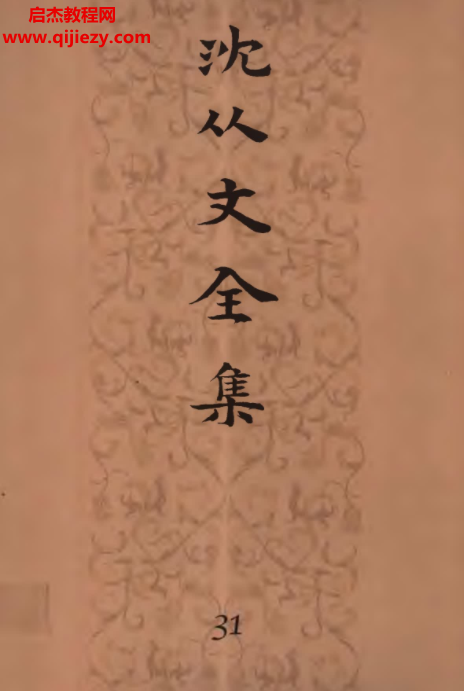 启杰教程网
www.qijiezy.com
沈从文全集
31